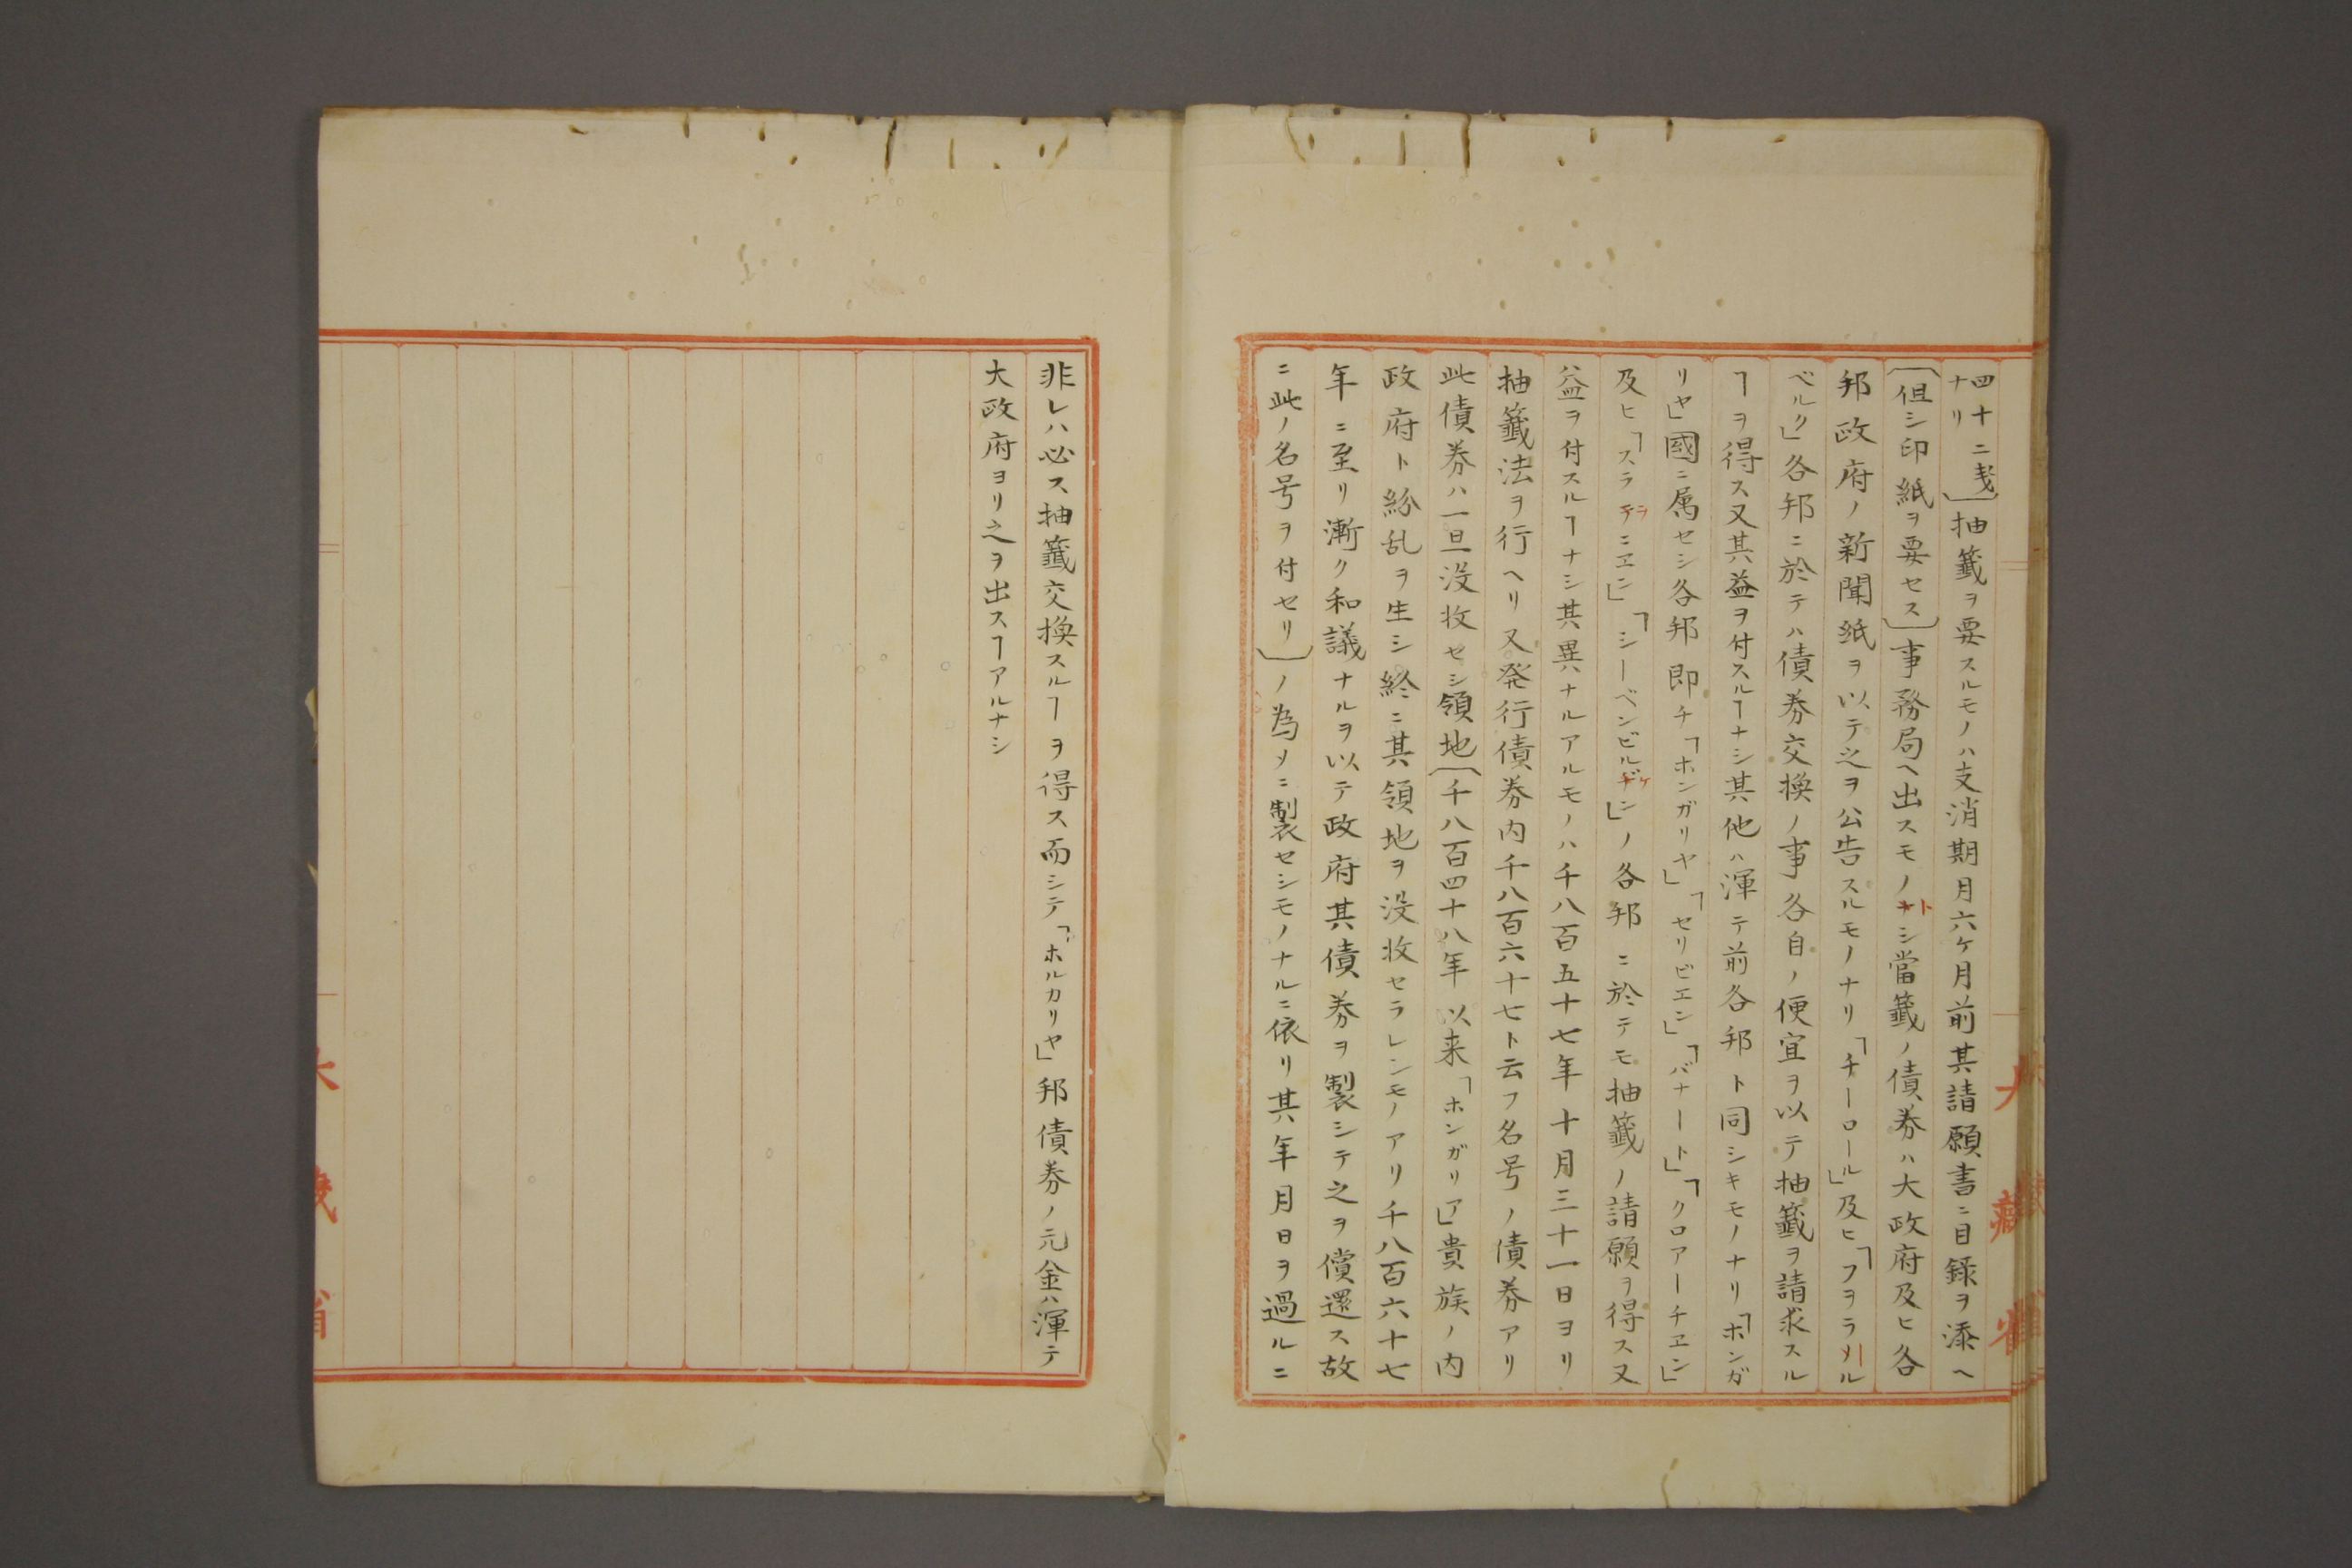 四十二戔
ナリ〕抽籤ヲ要スルモノハ支消期月六ケ月前其請願書ニ目録ヲ添ヘ
〔但シ印紙ヲ要セス〕事務局ヘ出スモノトシ當籤ノ債券ハ大政府及ヒ各
邦政府ノ新聞紙ヲ以テ之ヲ公告スルモノナリ「チーロール」及ヒ「フヲラールル
ベルク」各邦ニ於テハ債券交換ノ事各自ノ便宜ヲ以テ抽籤ヲ請求スル
ヿヲ得ス又其益ヲ付スルヿナシ其他ハ渾テ前各邦ト同シキモノナリ「ホンガ
リヤ」國ニ属セシ各邦即チ「ホンガリヤ」「セリビエン」「バナート」「クロアーチエン」
及ヒ「スラヲニエン」「シーベンビルゲン」ノ各邦ニ於テモ抽籤ノ請願ヲ得ス又
ハ益ヲ付スルヿナシ其異ナルアルモノハ千八百五十七年十月三十一日ヨリ
抽籤法ヲ行ヘリ又発行債券内千八百六十七ト云フ名号ノ債券アリ
此債券ハ一旦没收セシ領地〔千八百四十八年以来「ホンガリア」貴族ノ内
政府ト紛乱ヲ生シ終ニ其領地ヲ没收セラレシモノアリ千八百六十七
年ニ至リ漸ク和議ナルヲ以テ政府其債券ヲ製シテ之ヲ償還ス故
ニ此ノ名号ヲ付セリ〕ノ為メニ製セシモノナルニ依リ其年月日ヲ過ルニ
非レハ必ス抽籤交換スルヿヲ得ス而シテ「ホルカリヤ」邦債券ノ元金ハ渾テ
大政府ヨリ之ヲ出スヿアルナシ
大藏省